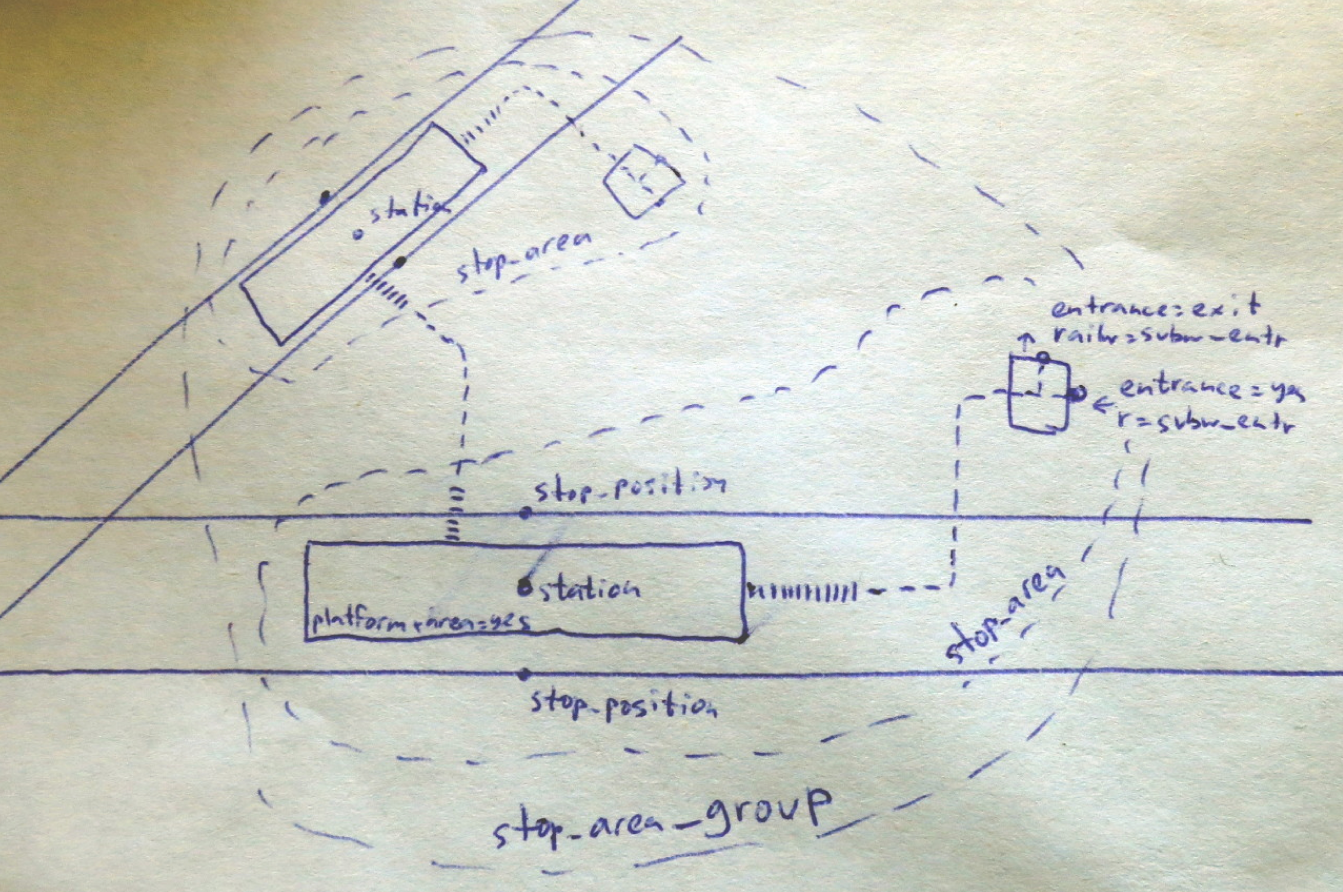 station
stop_area
entrance=exit
railw=subw_entr
entrance=yes
r=subw_entr
stop_position
station
platform+area=yes
stop_area
stop_position
stop_area_group